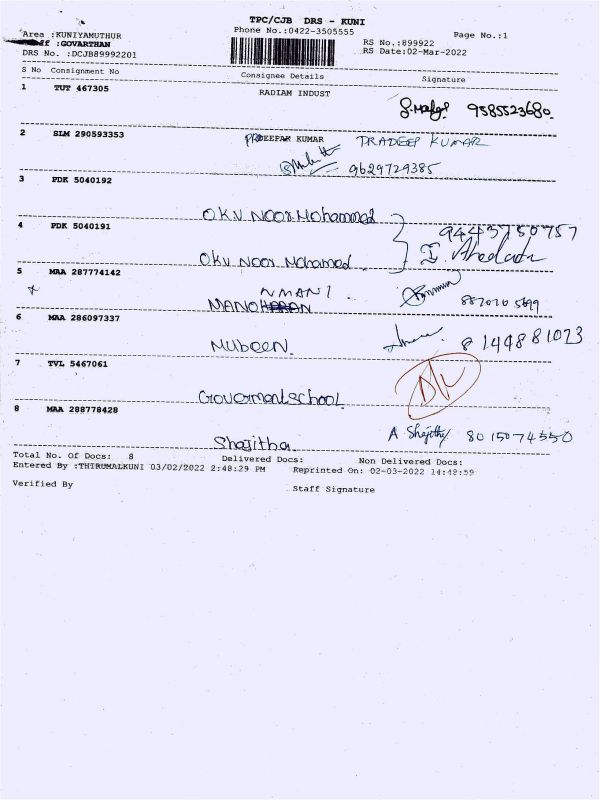 TPC/CJB DRS - KUNI
Area :KUNIYAMUTHUR Phone No.:0422-3505555 Page No.:1
:GOVARTHAN RS No.:899922
DRS No. :DCJB89992201 RS Date:02-Mar-2022
S No Consignment No Consignee Details Signature
1 TUT 467305 RADIAM INDUST
9585523680.
2 SLM 290593353 PRADEEPAK KUMAR PRADEEP KUMAR
9629729385
3 PDK 5040192
OKV Noor Mohammed
4 PDK 5040191 9443750757
OKV Noor Mohamed
5 MAA 287774142
NMANI
MANOHARAN
6 MAA 286097337
Mubeen. 8144881023
7 TVL 5467061
Governmentschool
8 MAA 288778428
Shajitha. A Shajitha 8015074550
Total No. Of Docs: 8 Delivered Docs: Non Delivered Docs:
Entered By :THIRUMALKUNI 03/02/2022 2:48:29 PM Reprinted On: 02-03-2022 14:48:59
Verified By Staff Signature